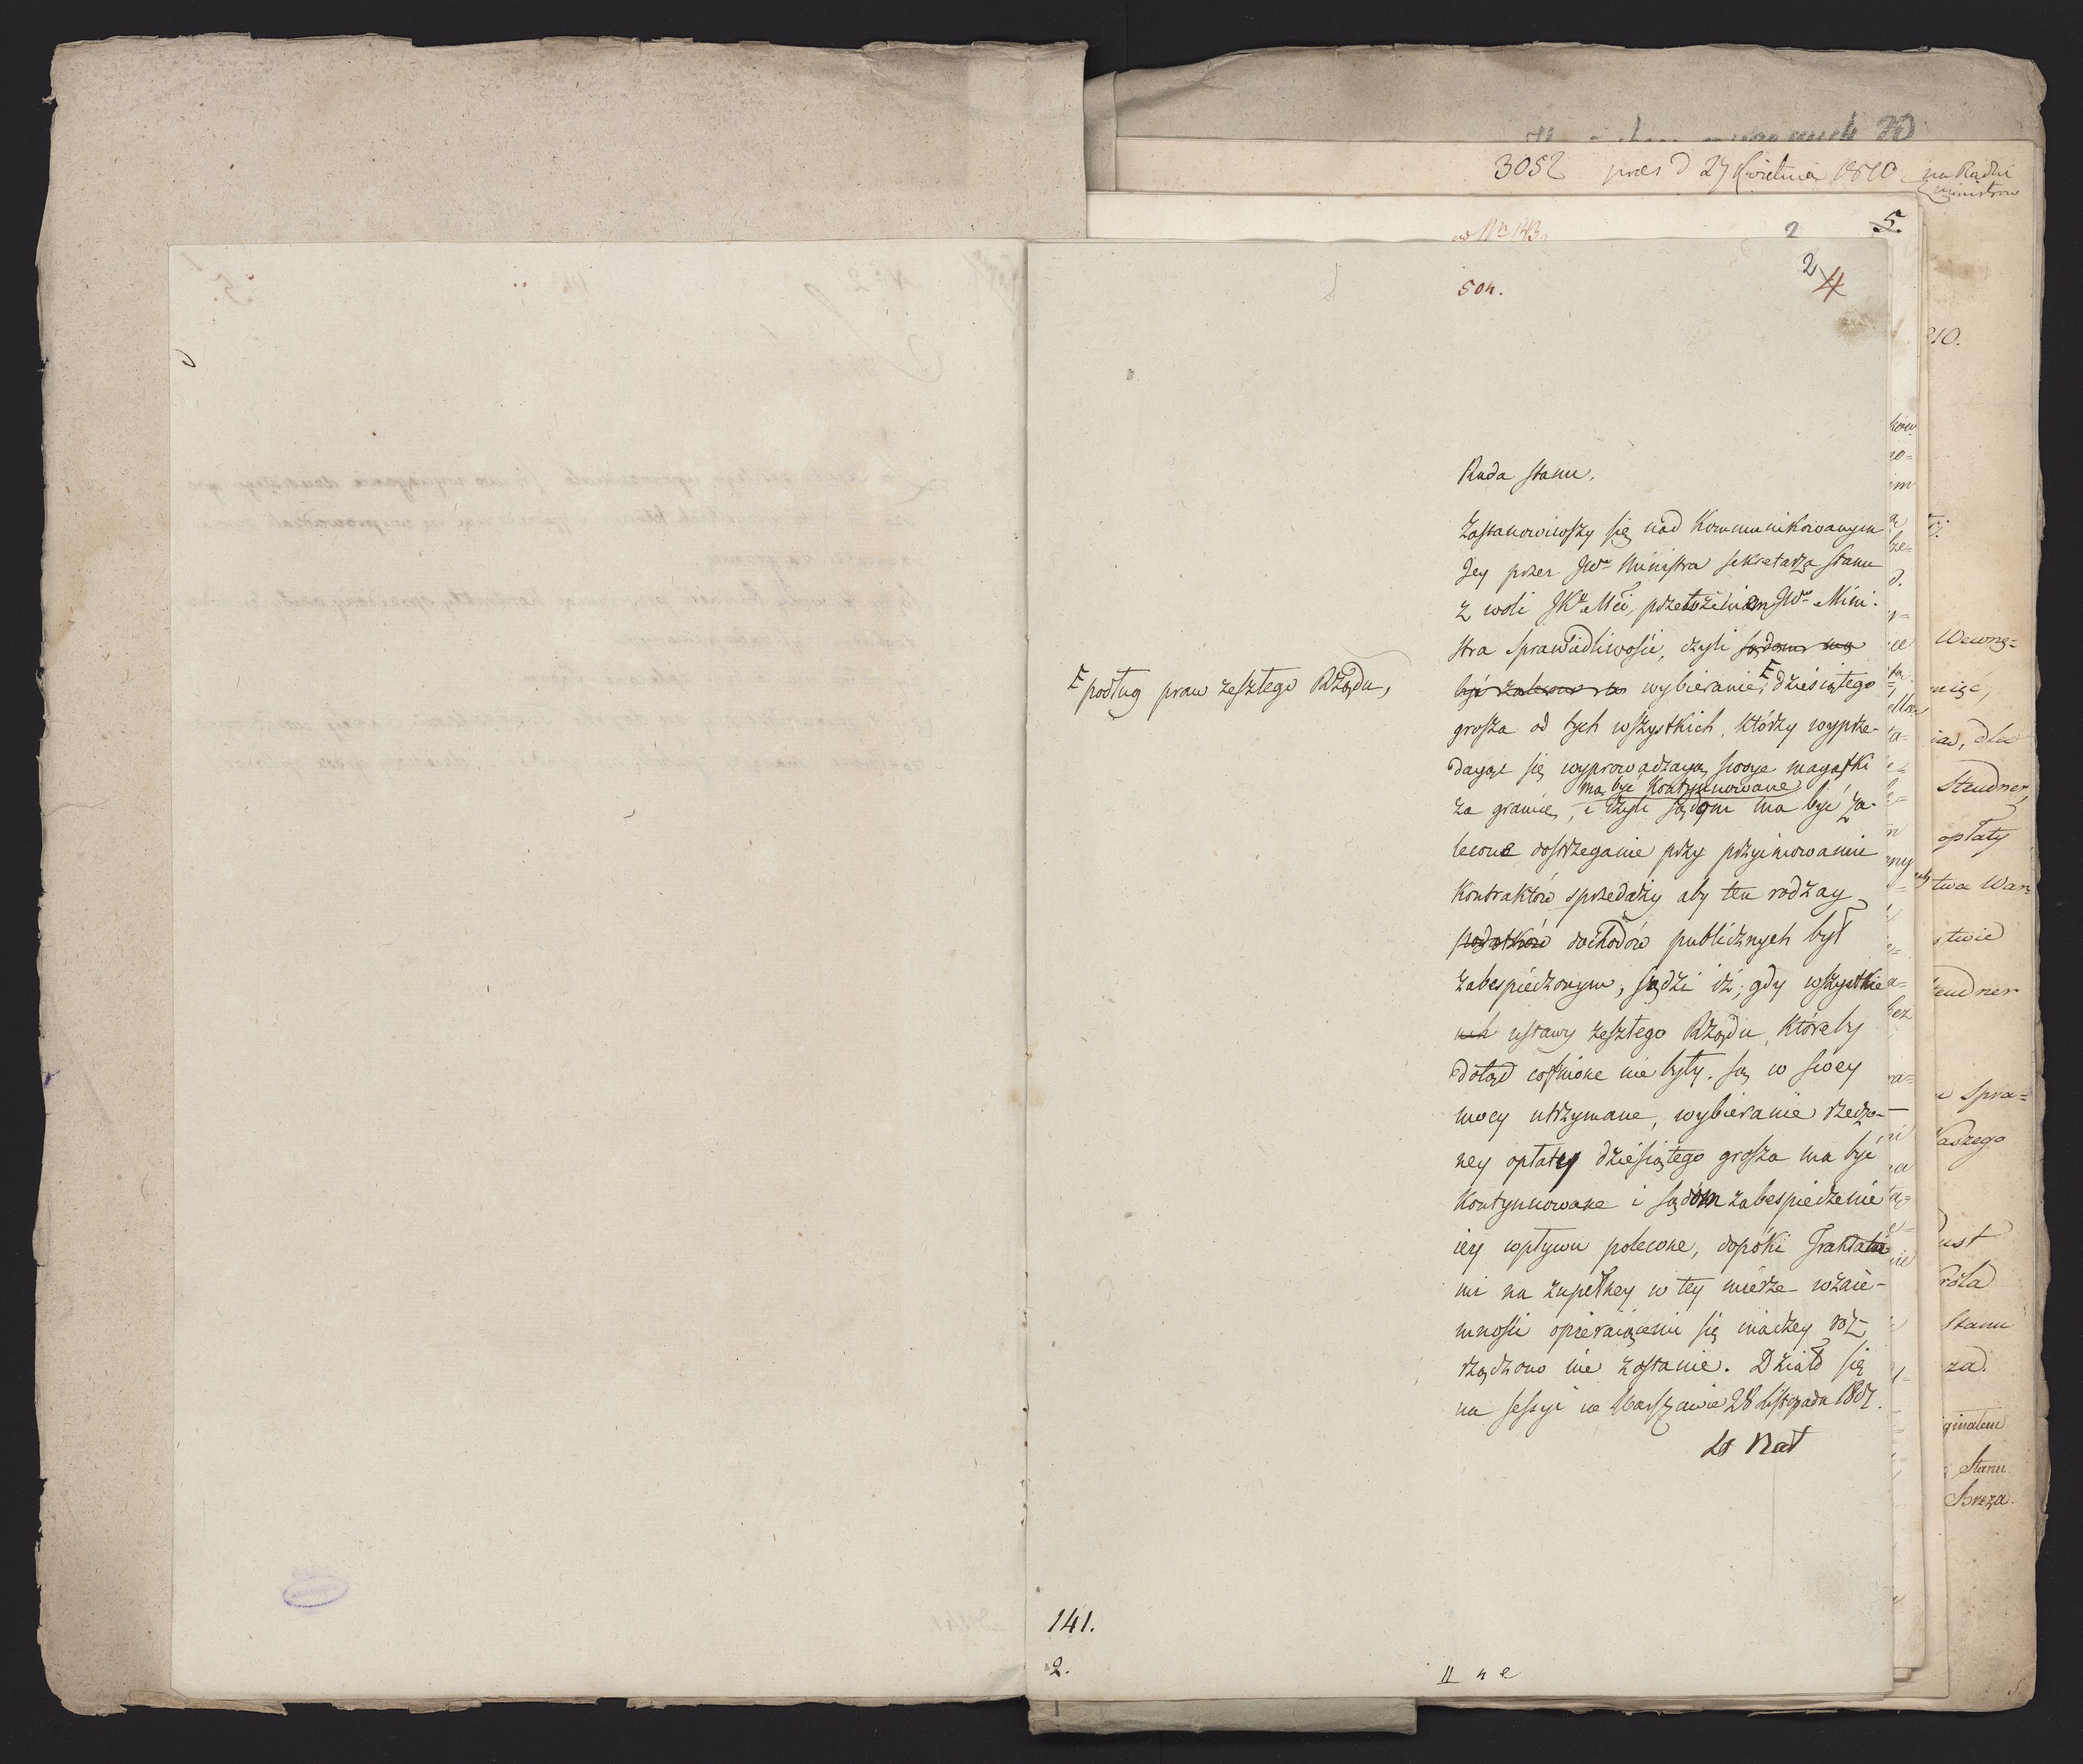 3052 praes d 27 Kwietnia 1810 na Radzie
Ministrow
2
5.
504.
2 4
Rada Stanu.
Zastanowiwszy się nad Kommunikowanym
Jey przez JWo Ministra Sekretarza Stanu
z woli JKr Mći, przełożeniem JWo Mini-
stra Sprawiedliwości, czyli sądom ma
być zalecone wybieranie, F dziesiątego
F podług praw zeszłego Rządu,
grosza od tych wszystkich, którzy wyprze-
daiąc się wyprowadzaią swoye maiątki
ma być kontynuowane
za granicę, i czyli sądom ma być za-
lecone dostrzeganie przy przyimowanie
Kontraktów sprzedaży aby ten rodzay
podatków dochodów publicznych był
zabespieczonym, sądzi iż, gdy wszystkie
ustawy zeszłego Rządu, któreby
dotąd cofnione nie były. są w swey
mocy utrzymane, wybieranie rzeczo-
ney opłaty dziesiątego grosza ma być
Kontynuowane i sądom zabespieczenie
iey wpływu polecone, dopóki Traktata-
mi na zupełney w tey mierze wzaie-
mności opieraiącemi się inaczey roz-
rządzono nie zostanie. Działo się
na sessyi w Warszawie 28 Listopada 1807.
141.
2.
10.
Wewnę=
dla
Steudner
opłaty
twa War=
stwie
teudner
Spra=
Naszego
ust
Króla
Stanu
za.
ginałem
Stanu
Breza.